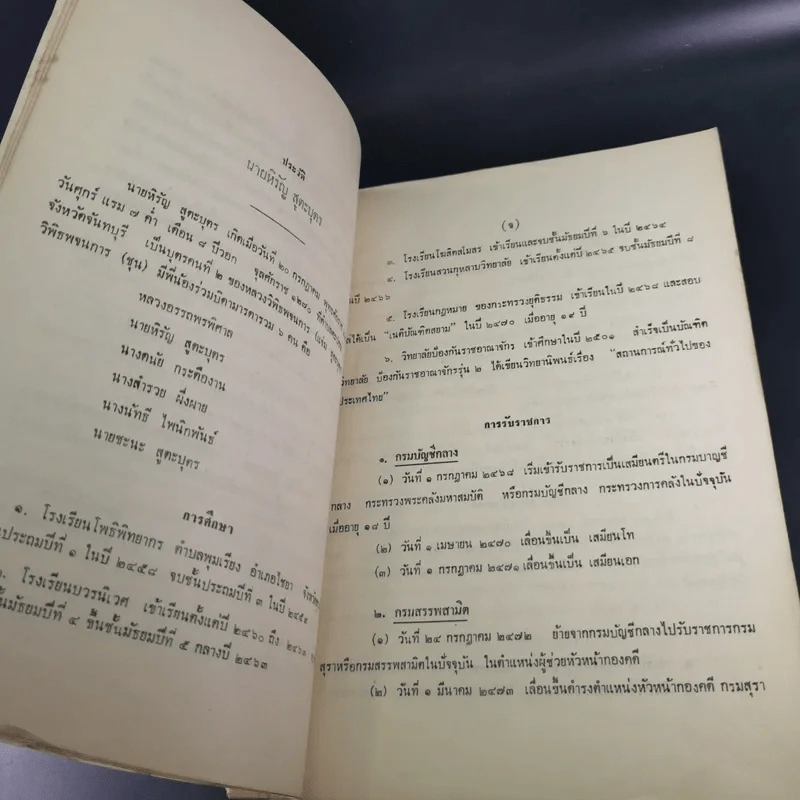 ประวัติ
นายหิรัญ สูตะบุตร
นายหิรัญ สูตะบุตร เกิดเมื่อวันที่ ๒๐ กรกฎาคม
วันศุกร์ แรม ๗ ค่ำ เดือน ๘ ปีวอก จุลศักราช ๑๒๘๐
จังหวัดจันทบุรี เป็นบุตรคนที่ ๒ ของหลวงวิพิธพจนการ
วิพิธพจนการ (ชุน) มีพี่น้องร่วมบิดามารดารวม ๖ คน คือ
หลวงอรรถพรพิศาล
นายหิรัญ สูตะบุตร
นางดนัย กระดืองาน
นางสำรวย ผึ่งผาย
นางนัทธี ไพนิกพันธ์
นายชะนะ สูตะบุตร
การศึกษา
๑. โรงเรียนโพธิพิทยากร ตำบลพุมเรียง อำเภอไชยา
ประถมปีที่ ๑ ในปี ๒๔๕๘ จบชั้นประถมปีที่ ๓ ในปี
โรงเรียนบวรนิเวศ เข้าเรียนตั้งแต่ปี ๒๔๖๐ ถึง
มัธยมปีที่ ๔ ขึ้นชั้นมัธยมปีที่ ๕ กลางปี ๒๔๖๓
๓. โรงเรียนโฆสิตสโมสร เข้าเรียนและจบชั้นมัธยมปีที่ ๖ ในปี ๒๔๖๔
๔. โรงเรียนสวนกุหลาบวิทยาลัย เข้าเรียนตั้งแต่ปี ๒๔๖๕ จบชั้นมัธยมปีที่ ๘
ในปี ๒๔๖๖
๕. โรงเรียนกฎหมาย ของกระทรวงยุติธรรม เข้าเรียนในปี ๒๔๖๘ และสอบ
ได้เป็น "เนติบัณฑิตสยาม" ในปี ๒๔๗๐ เมื่ออายุ ๑๙ ปี
๖. วิทยาลัยป้องกันราชอาณาจักร เข้าศึกษาในปี ๒๕๐๑ สำเร็จเป็นบัณฑิต
วิทยาลัย ป้องกันราชอาณาจักรรุ่น ๒ ได้เขียนวิทยานิพนธ์เรื่อง "สถานการณ์ทั่วไปของ
ประเทศไทย"
การรับราชการ
๑. กรมบัญชีกลาง
(๑) วันที่ ๑ กรกฎาคม ๒๔๖๘ เริ่มเข้ารับราชการเป็นเสมียนตรีในกรมบาญชี
กลาง กระทรวงพระคลังมหาสมบัติ หรือกรมบัญชีกลาง กระทรวงการคลังในปัจจุบัน
เมื่ออายุ ๑๘ ปี
(๒) วันที่ ๑ เมษายน ๒๔๗๐ เลื่อนขึ้นเป็น เสมียนโท
(๓) วันที่ ๑ กรกฎาคม ๒๔๗๑ เลื่อนขึ้นเป็น เสมียนเอก
๒. กรมสรรพสามิต
(๑) วันที่ ๒๔ กรกฎาคม ๒๔๗๒ ย้ายจากกรมบัญชีกลางไปรับราชการกรม
สุราหรือกรมสรรพสามิตในปัจจุบัน ในตำแหน่งผู้ช่วยหัวหน้ากองคดี
(๒) วันที่ ๑ มีนาคม ๒๔๗๓ เลื่อนขึ้นดำรงตำแหน่งหัวหน้ากองคดี กรมสุรา